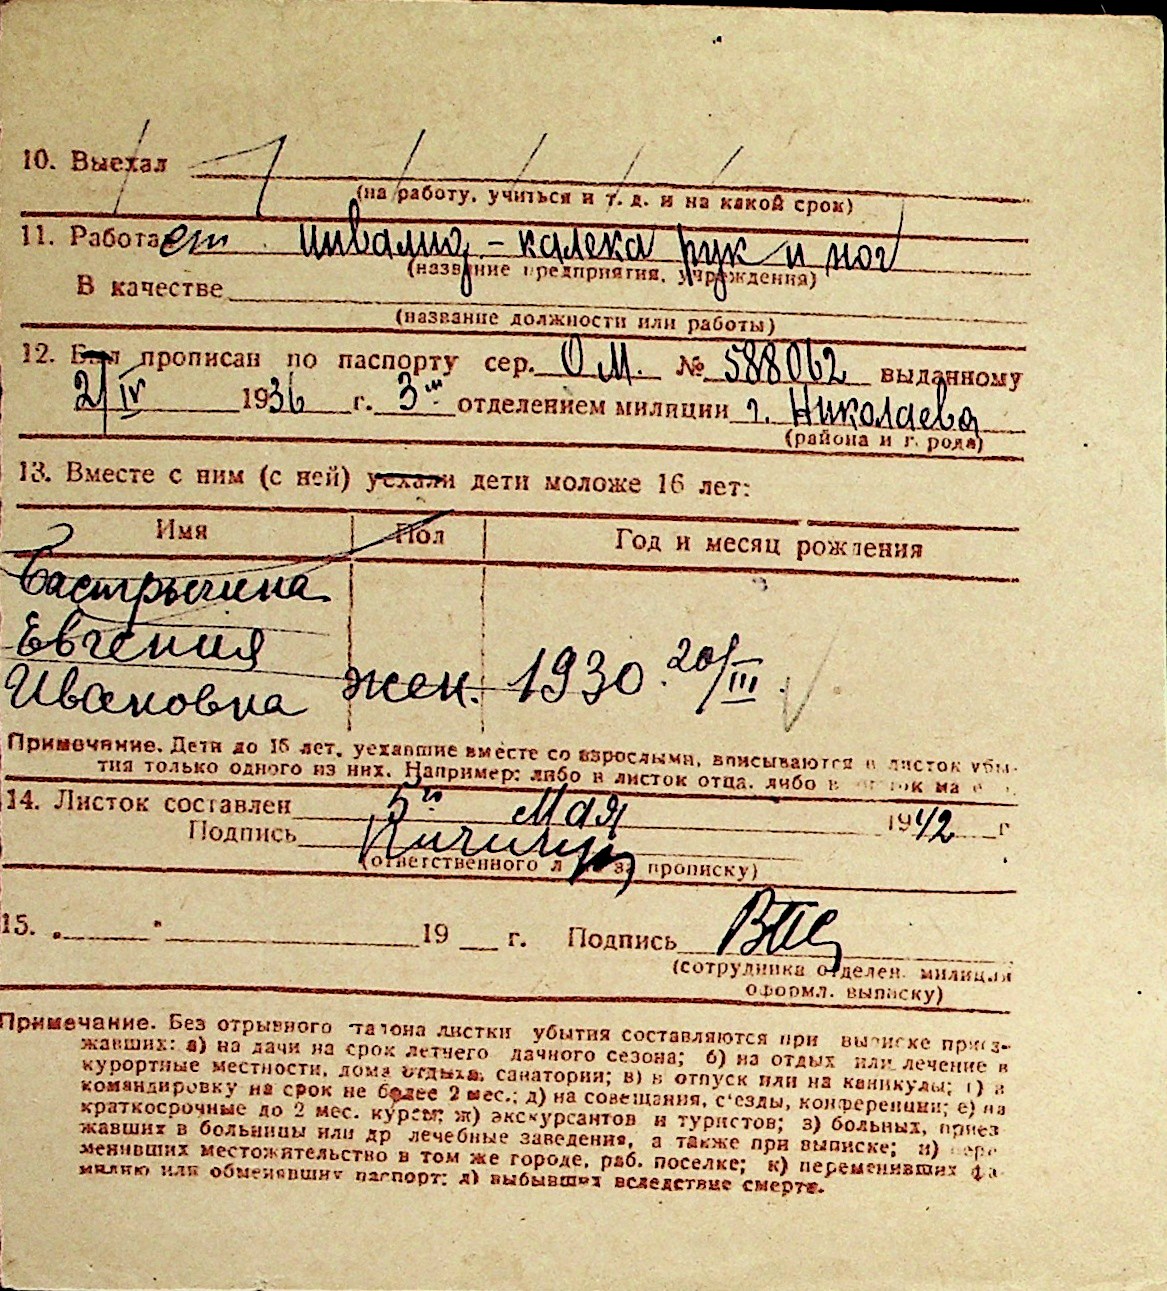 10. Выехал
(на работу, учиться и т. д. и на какой срок)
11. Работает инвалид - калека рук и ног
(название предприятия, учреждения)
В качестве
(название должности или работы)
12. Был прописан по паспорту сер. ОМ. № 588062 выданному
2/IV 1936 г. 3м отделением милиции г. Николаева
(района и г. рода)
13. Вместе с ним (с ней) уехали дети моложе 16 лет:
Имя Пол Год и месяц рождения
Бастрыгина
Евгения
Ивановна жен. 1930. 20/III.
Примечание. Дети до 16 лет, уехавшие вместе со взрослыми, вписываются в листок убы-
тия только одного из них. Например: либо в листок отца, либо в
14. Листок составлен 5го Мая 1942 г
Подпись
(ответственного за прописку)
15. „ " 19 г. Подпись
(сотрудника отделен. милиции
оформл. выписку)
Примечание. Без отрывного талона листки убытия составляются при выписке приез-
жавших: а) на дачи на срок летнего дачного сезона; б) на отдых или лечение в
курортные местности, дома отдыха, санатории; в) в отпуск или на каникулы; г) в
командировку на срок не более 2 мес.; д) на совещания, с'езды, конференции; е) на
краткосрочные до 2 мес. курсы; ж) экскурсантов и туристов; з) больных, приез
жавших в больницы или др лечебные заведения, а также при выписке; и) пере
менивших местожительство в том же городе, раб. поселке; к) переменивших фа-
милию или обменявших паспорт; л) выбывших вследствие смерти.